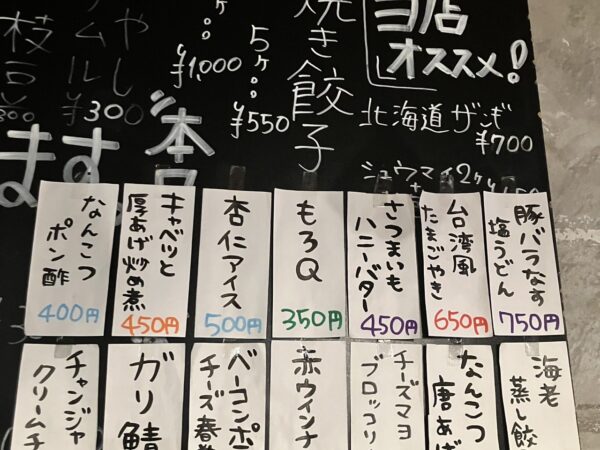 当店
オススメ!
北海道ザンギ
¥700
シュウマイ2ヶ
焼き餃子
5ヶ
¥550
¥1,000
やし
ムル
¥300
枝豆
300
本日
ます。
豚バラなす
塩うどん
750円
台湾風
たまごやき
650円
さつまいも
ハニーバター
450円
もろQ
350円
杏仁アイス
500円
キャベツと
厚あげ炒め煮
450円
なんこつ
ポン酢
400円
海老
蒸し餃
なんこつ
唐あげ
チーズマヨ
ブロッコリ
赤ウインナ
ベーコンポテ
チーズ春巻
ガリ鯖
チャンジャ
クリームチ